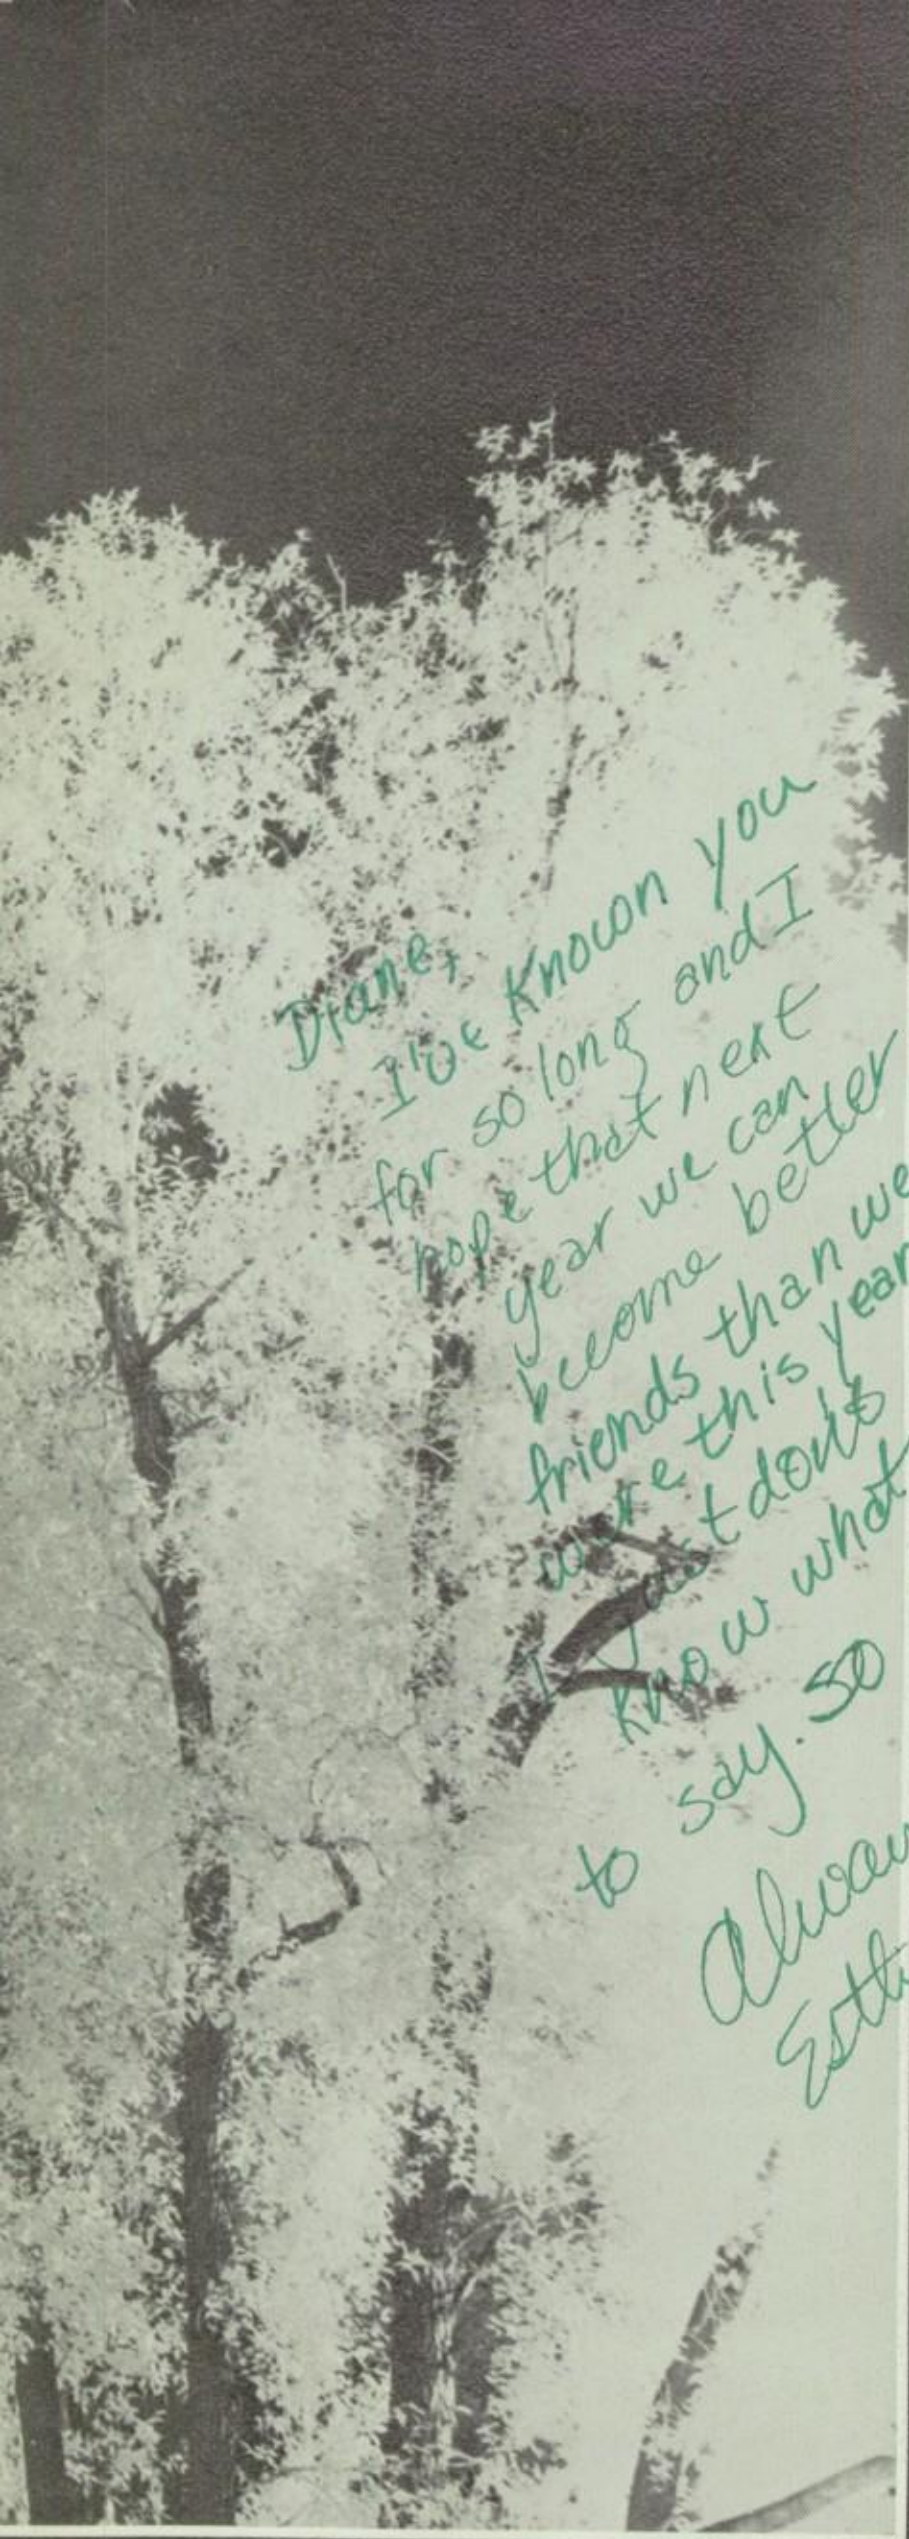 Diane,
I've known you
for so long and I
hope that next
year we can
become better
friends than we
were this year
I just don't
know what
to say. so
Alway
Esth